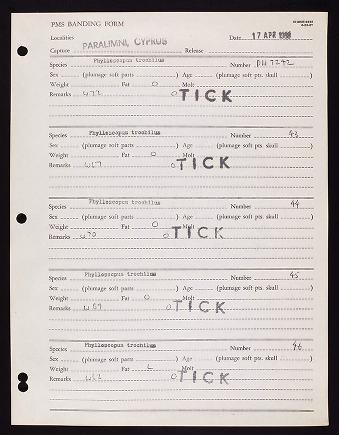 PMS BANDING FORM
Localities Date 17 APR
Capture PARALIMNI, CYPRUS Release
Species Phylloscopus trochilus Number 7242
Sex (plumage soft parts ) Age (plumage soft pts. skull )
Weight Fat O Molt
Remarks W72 O TICK
Species Phylloscopus trochilus Number 43
Sex (plumage soft parts ) Age (plumage soft pts. skull )
Weight Fat O Molt
Remarks W67 O TICK
Species Phylloscopus trochilus Number 44
Sex (plumage soft parts ) Age (plumage soft pts. skull )
Weight Fat O Molt
Remarks W70 O TICK
Species Phylloscopus trochilus Number 45
Sex (plumage soft parts ) Age (plumage soft pts. skull )
Weight Fat O Molt
Remarks W69 O TICK
Species Phylloscopus trochilus Number 46
Sex (plumage soft parts ) Age (plumage soft pts. skull )
Weight Fat L Molt
Remarks O TICK